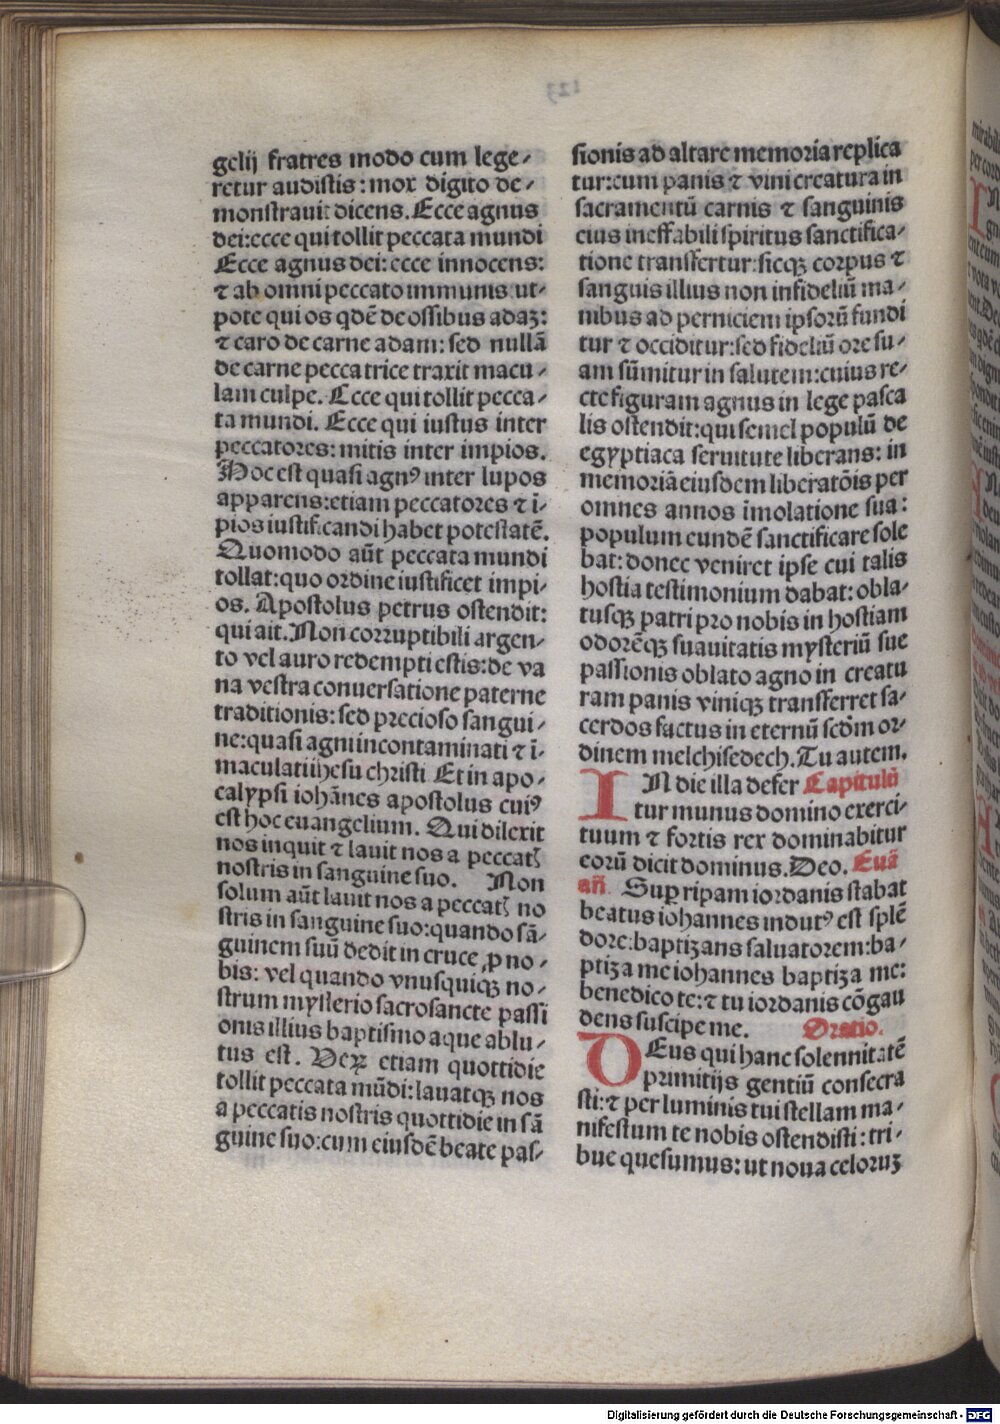 gelij fratres modo cum lege⸗
retur audistis: mox digito de⸗
monstrauit dicens. Ecce agnus
dei: ecce qui tollit peccata mundi
Ecce agnus dei: ecce innocens:
⁊ ab omni peccato immunis: ut⸗
pote qui os qdē de ossibus adaꝫ:
⁊ caro de carne adam: sed nullā
de carne peccatrice traxit macu⸗
lam culpe. Ecce qui tollit pecca⸗
ta mundi. Ecce qui iustus inter
peccatores: mitis inter impios.
Hoc est quasi agnꝰ inter lupos
apparens: etiam peccatores ⁊ ī⸗
pios iustificandi habet potestatē.
Quomodo aūt peccata mundi
tollat: quo ordine iustificet impi⸗
os. Apostolus petrus ostendit:
qui ait. Non corruptibili argen⸗
to vel auro redempti estis: de va
na vestra conuersatione paterne
traditionis: sed precioso sangui⸗
ne: quasi agni incontaminati ⁊ ī⸗
maculati ihesu christi Et in apo⸗
calypsi iohānes apostolus cuiꝰ
est hoc euangelium. Qui dilexit
nos inquit ⁊ lauit nos a peccatꝭ
nostris in sanguine suo. Non
solum aūt lauit nos a peccatꝭ no
stris in sanguine suo: quando sā⸗
guinem suū dedit in cruce ꝓ no⸗
bis: vel quando vnusquisqꝫ no⸗
strum mysterio sacrosancte passi
onis illius baptismo aque ablu⸗
tus est. Veꝝ etiam quottidie
tollit peccata mūdi: lauatqꝫ nos
a peccatis nostris quottidie in sā
guine suo: cum eiusdē beate pas⸗
sionis ad altare memoria replica
tur: cum panis ⁊ vini creatura in
sacramentū carnis ⁊ sanguinis
eius ineffabili spiritus sanctifica⸗
tione transfertur: sicqꝫ corpus ⁊
sanguis illius non infideliū ma⸗
nibus ad perniciem ipsorū fundi
tur ⁊ occiditur: sed fideliū ore su⸗
am sūmitur in salutem: cuius re⸗
cte figuram agnus in lege pasca
lis ostendit: qui semel populū de
egyptiaca seruitute liberans: in
memoriā eiusdem liberatōis per
omnes annos imolatione sua:
populum eundē sanctificare sole
bat: donec veniret ipse cui talis
hostia testimonium dabat: obla⸗
tusqꝫ patri pro nobis in hostiam
odorēqꝫ suauitatis mysteriū sue
passionis oblato agno in creatu
ram panis viniqꝫ transferret sa⸗
cerdos factus in eternū scdm or⸗
dinem melchisedech. Tu autem.
IN die illa defer Capitulū
tur munus domino exerci⸗
tuum ⁊ fortis rex dominabitur
eorū dicit dominus. Deo. Euā
an̄. Suꝑ ripam iordanis stabat
beatus iohannes indutꝰ est splē
dore: baptizans saluatorem: ba⸗
ptiza me iohannes baptiza me:
benedico te: ⁊ tu iordanis cōgau
dens suscipe me. Oratio.
DEus qui hanc solennitatē
primitijs gentiū consecra
sti: ⁊ per luminis tui stellam ma⸗
nifestum te nobis ostendisti: tri⸗
bue quesumus: ut noua celoruꝫ
Digitalisierung gefördert durch die Deutsche Forschungsgemeinschaft - DFG